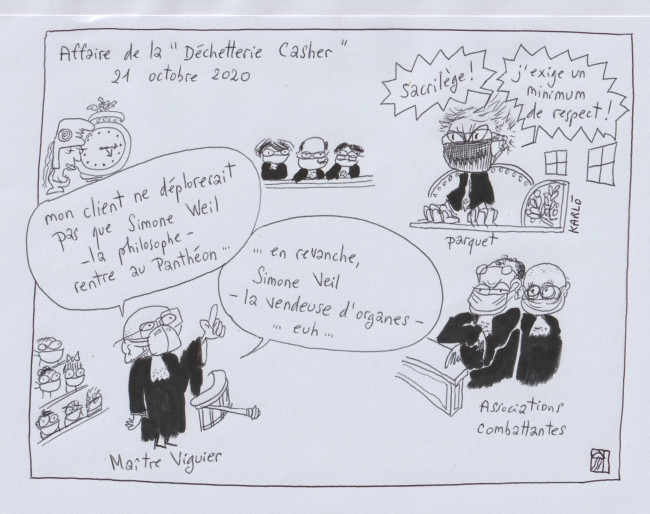 Affaire de la "Déchetterie Casher"
21 octobre 2020
sacrilège !
j'exige un
minimum
de respect !
mon client ne déplorerait
pas que Simone Weil
- la philosophe -
rentre au Panthéon ...
... en revanche,
Simone Veil
- la vendeuse d'organes -
... euh ...
KARLÖ
parquet
Associations
combattantes
Maître Viguier